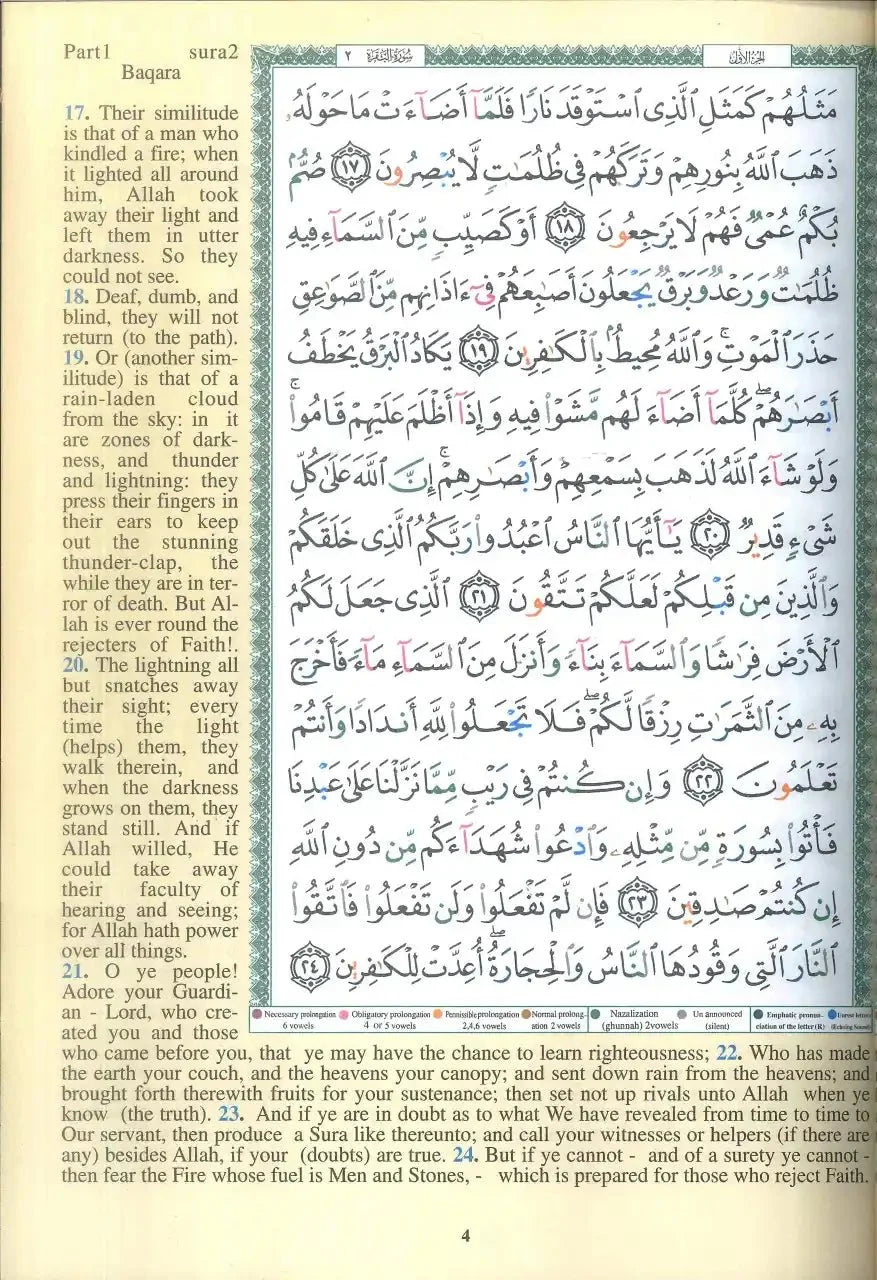 Part1 sura2
Baqara
17. Their similitude
is that of a man who
kindled a fire; when
it lighted all around
him, Allah took
away their light and
left them in utter
darkness. So they
could not see.
18. Deaf, dumb, and
blind, they will not
return (to the path).
19. Or (another sim-
ilitude) is that of a
rain-laden cloud
from the sky: in it
are zones of dark-
ness, and thunder
and lightning: they
press their fingers in
their ears to keep
out the stunning
thunder-clap, the
while they are in ter-
ror of death. But Al-
lah is ever round the
rejecters of Faith!.
20. The lightning all
but snatches away
their sight; every
time the light
(helps) them, they
walk therein, and
when the darkness
grows on them, they
stand still. And if
Allah willed, He
could take away
their faculty of
hearing and seeing;
for Allah hath power
over all things.
21. O ye people!
Adore your Guardi-
an - Lord, who cre-
ated you and those
who came before you, that ye may have the chance to learn righteousness; 22. Who has made
the earth your couch, and the heavens your canopy; and sent down rain from the heavens; and
brought forth therewith fruits for your sustenance; then set not up rivals unto Allah when ye
know (the truth). 23. And if ye are in doubt as to what We have revealed from time to time to
Our servant, then produce a Sura like thereunto; and call your witnesses or helpers (if there are
any) besides Allah, if your (doubts) are true. 24. But if ye cannot - and of a surety ye cannot -
then fear the Fire whose fuel is Men and Stones, - which is prepared for those who reject Faith.
الجزء الأول
سورة البقرة ٢
مَثَلُهُمْ كَمَثَلِ ٱلَّذِى ٱسْتَوْقَدَ نَارًا فَلَمَّآ أَضَآءَتْ مَا حَوْلَهُۥ
ذَهَبَ ٱللَّهُ بِنُورِهِمْ وَتَرَكَهُمْ فِى ظُلُمَٰتٍ لَّا يُبْصِرُونَ ١٧ صُمٌّۢ
بُكْمٌ عُمْىٌ فَهُمْ لَا يَرْجِعُونَ ١٨ أَوْ كَصَيِّبٍ مِّنَ ٱلسَّمَآءِ فِيهِ
ظُلُمَٰتٌ وَرَعْدٌ وَبَرْقٌ يَجْعَلُونَ أَصَٰبِعَهُمْ فِىٓ ءَاذَانِهِم مِّنَ ٱلصَّوَٰعِقِ
حَذَرَ ٱلْمَوْتِ ۚ وَٱللَّهُ مُحِيطٌۢ بِٱلْكَٰفِرِينَ ١٩ يَكَادُ ٱلْبَرْقُ يَخْطَفُ
أَبْصَٰرَهُمْ ۖ كُلَّمَآ أَضَآءَ لَهُم مَّشَوْا۟ فِيهِ وَإِذَآ أَظْلَمَ عَلَيْهِمْ قَامُوا۟ ۚ
وَلَوْ شَآءَ ٱللَّهُ لَذَهَبَ بِسَمْعِهِمْ وَأَبْصَٰرِهِمْ ۚ إِنَّ ٱللَّهَ عَلَىٰ كُلِّ
شَىْءٍ قَدِيرٌ ٢٠ يَٰٓأَيُّهَا ٱلنَّاسُ ٱعْبُدُوا۟ رَبَّكُمُ ٱلَّذِى خَلَقَكُمْ
وَٱلَّذِينَ مِن قَبْلِكُمْ لَعَلَّكُمْ تَتَّقُونَ ٢١ ٱلَّذِى جَعَلَ لَكُمُ
ٱلْأَرْضَ فِرَٰشًا وَٱلسَّمَآءَ بِنَآءً وَأَنزَلَ مِنَ ٱلسَّمَآءِ مَآءً فَأَخْرَجَ
بِهِۦ مِنَ ٱلثَّمَرَٰتِ رِزْقًا لَّكُمْ ۖ فَلَا تَجْعَلُوا۟ لِلَّهِ أَندَادًا وَأَنتُمْ
تَعْلَمُونَ ٢٢ وَإِن كُنتُمْ فِى رَيْبٍ مِّمَّا نَزَّلْنَا عَلَىٰ عَبْدِنَا
فَأْتُوا۟ بِسُورَةٍ مِّن مِّثْلِهِۦ وَٱدْعُوا۟ شُهَدَآءَكُم مِّن دُونِ ٱللَّهِ
إِن كُنتُمْ صَٰدِقِينَ ٢٣ فَإِن لَّمْ تَفْعَلُوا۟ وَلَن تَفْعَلُوا۟ فَٱتَّقُوا۟
ٱلنَّارَ ٱلَّتِى وَقُودُهَا ٱلنَّاسُ وَٱلْحِجَارَةُ ۖ أُعِدَّتْ لِلْكَٰفِرِينَ ٢٤
Necessary prolongation 6 vowels
Obligatory prolongation 4 or 5 vowels
Permissible prolongation 2,4,6 vowels
Normal prolong-ation 2 vowels
Nazalization (ghunnah) 2vowels
Un announced (silent)
Emphatic pronun-ciation of the letter (R)
Unrest letters (Echoing Sound)
4